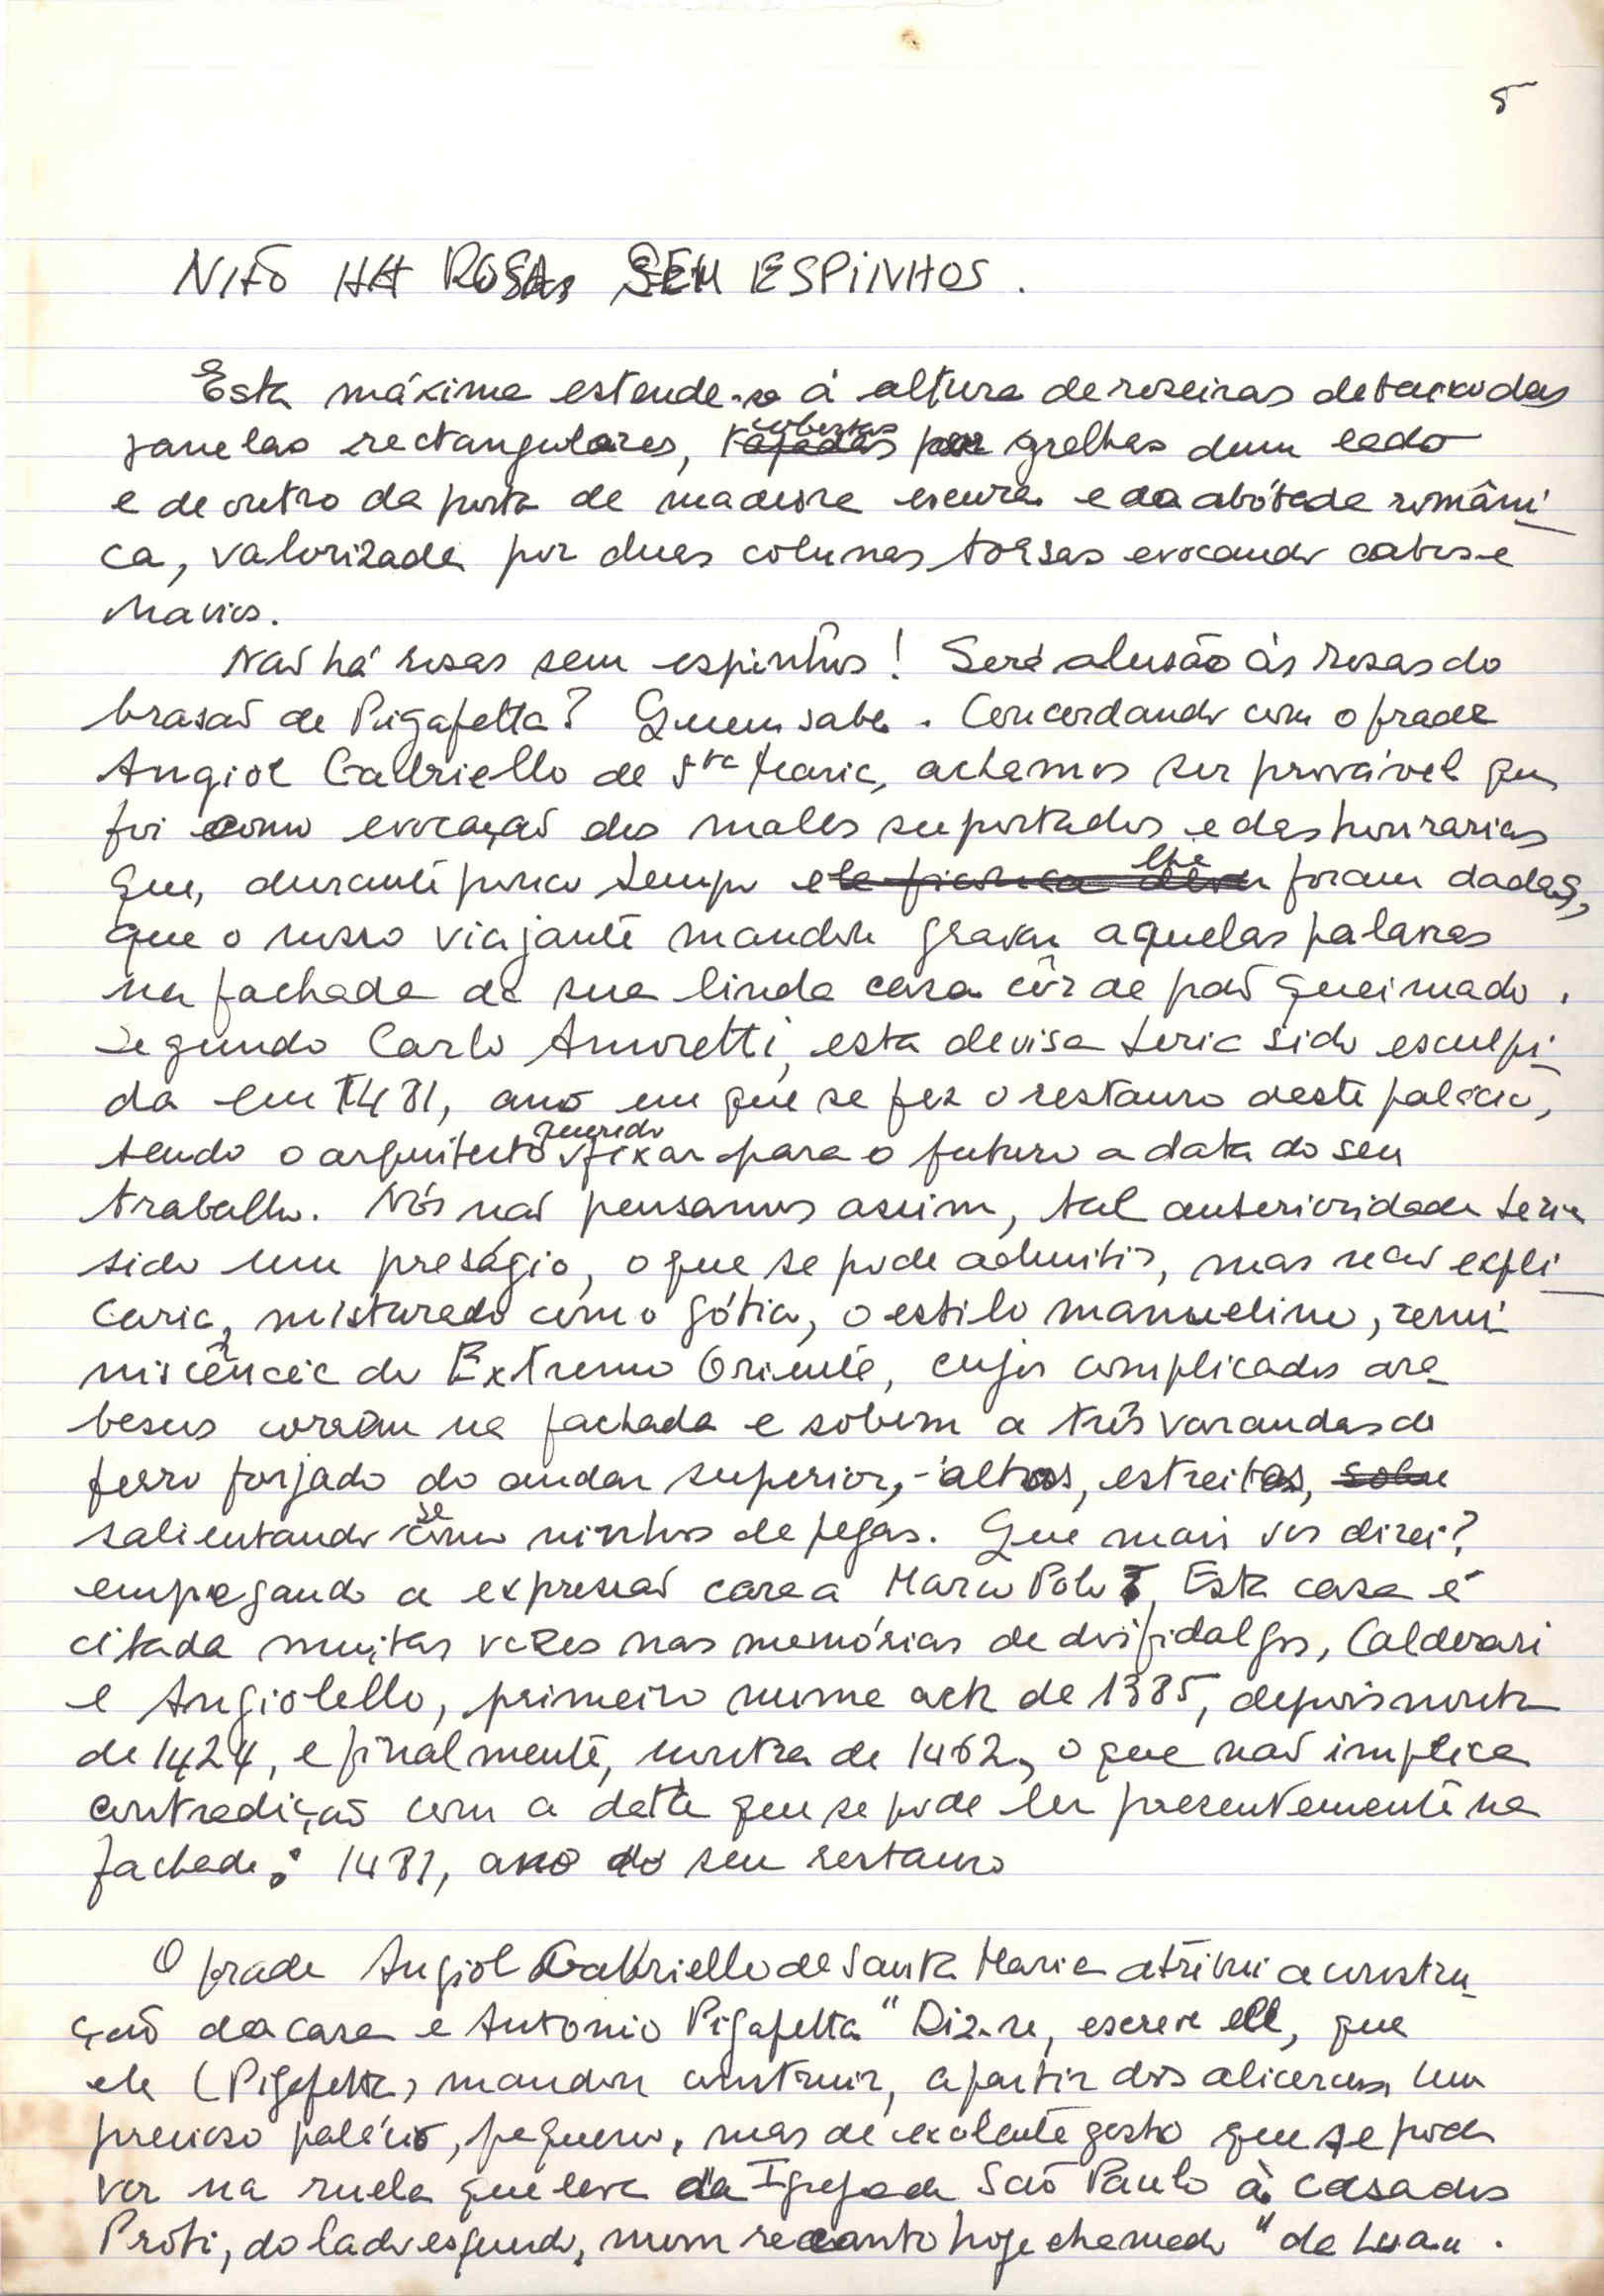 5
NÃO HÁ ROSAS SEM ESPINHOS.
Esta máxima estende-se à altura de roseiras debaixo das
janelas rectangulares, cobertas por grelhas dum lado
e de outro da porta de madeira escura e da abóbada români_
ca, valorizada por duas colunas torsas evocando cabos de
navios.
Não há rosas sem espinhos! Será alusão às rosas do
brasão de Pigafetta? Quem sabe. Concordando com o frade
Angiol Gabriello de Sta Maria, achamos ser provável que
foi como evocação dos males suportados e das honrarias
que, durante pouco tempo lhe foram dadas,
que o nosso viajante mandou gravar aquelas palavras
na fachada da sua linda casa côr de pão queimado.
Segundo Carlo Amoretti, esta devisa teria sido esculpi_
da em 1481, ano em que se fez o restauro deste palácio,
tendo o arquitecto querido fixar para o futuro a data do seu
trabalho. Nós não pensamos assim, tal anterioridade teria
sido um preságio, o que se pode admitir, mas não expli_
caria, misturado com o gótico, o estilo manuelino, remi_
niscência do Extremo Oriente, cujos complicados ara_
bescos correm na fachada e sobem a três varandas de
ferro forjado do andar superior, - altas, estreitas, sobre
salientando-se como ninhos de pegas. Que mais vos direi?
empregando a expressão cara a Marco Polo, Esta casa é
citada muitas vezes nas memórias de dois fidalgos, Calderari
e Angiolello, primeiro num acta de 1385, depois noutra
de 1424, e finalmente, noutra de 1462, o que não implica
contradição com a data que se pode ler presentemente na
fachada: 1481, ano do seu restauro
O frade Angiol Gabriello de Santa Maria atribui a constru_
ção da casa a Antonio Pigafetta "Diz-se, escreve ele, que
ele (Pigafetta) mandou construir, a partir dos alicerces, um
precioso palácio, pequeno, mas de excelente gosto que se pode
ver na ruela que leva da Igreja de São Paulo à casa dos
Proti, do lado esquerdo, num recanto hoje chamado "da Lua".